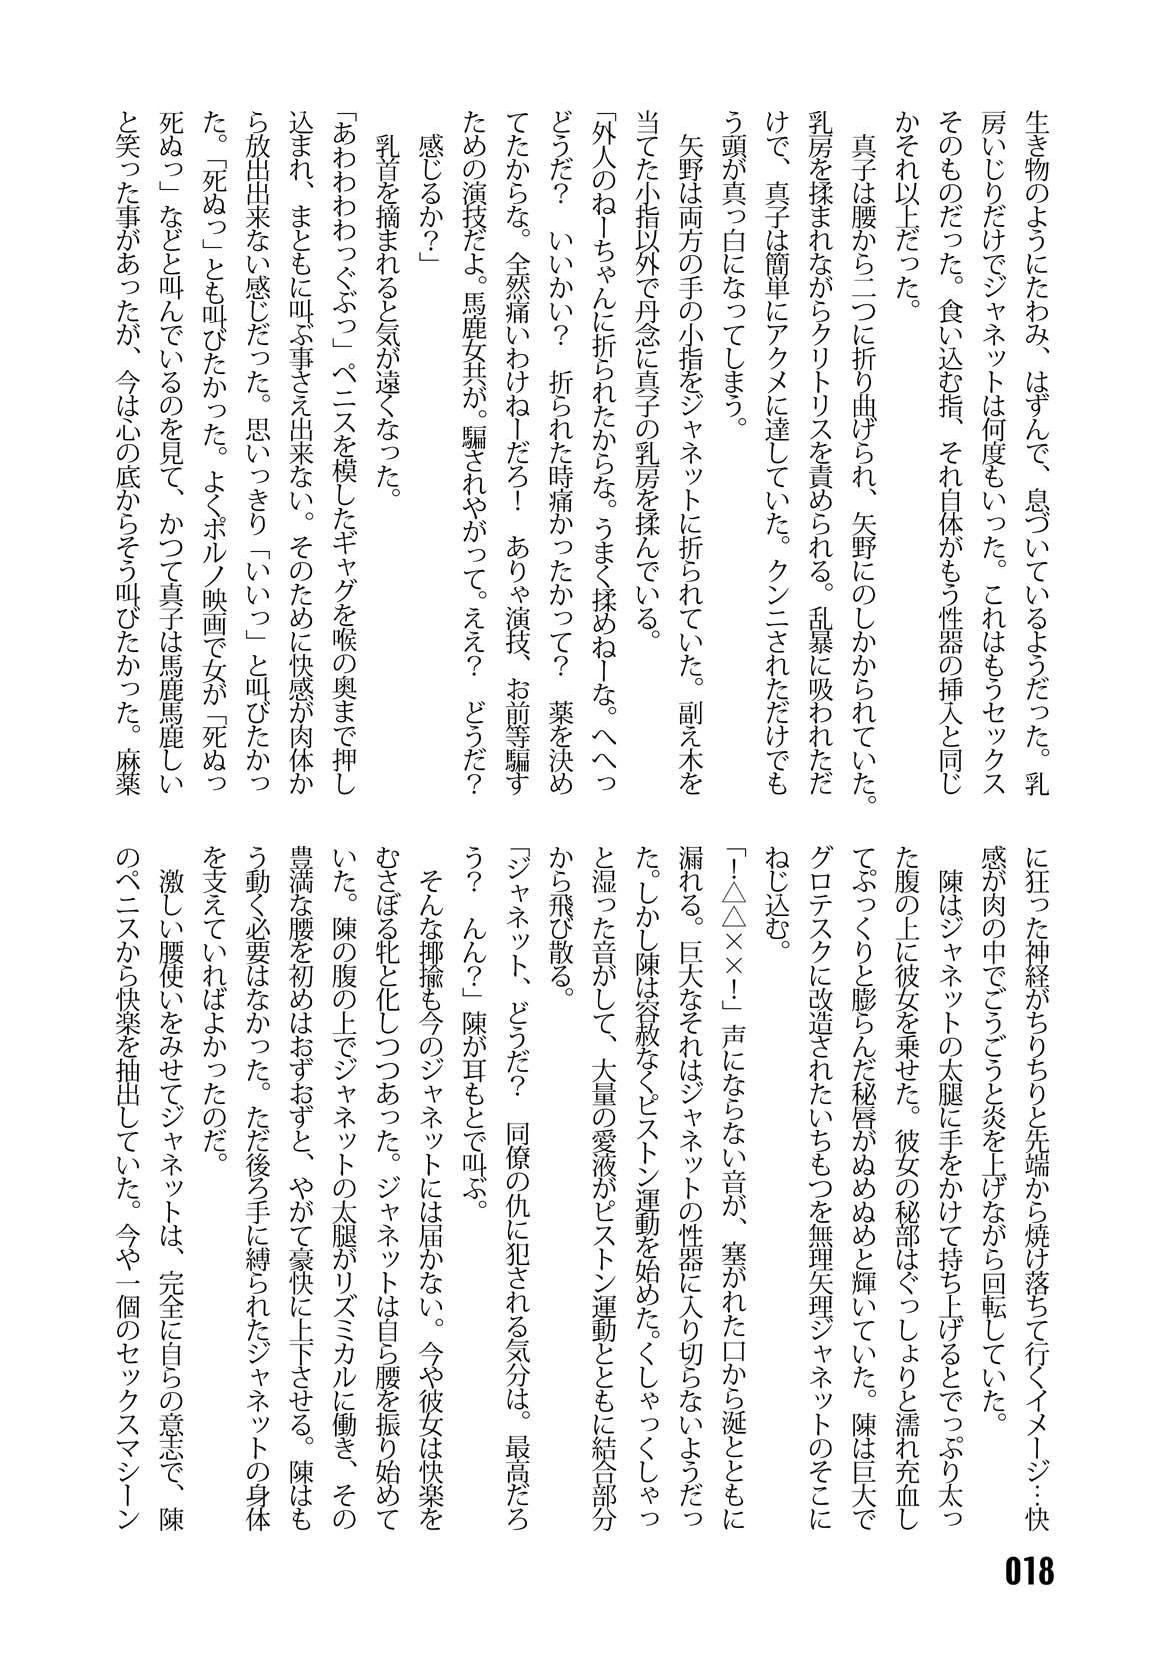 生き物のようにたわみ、はずんで、息づいているようだった。乳
房いじりだけでジャネットは何度もいった。これはもうセックス
そのものだった。食い込む指、それ自体がもう性器の挿入と同じ
かそれ以上だった。
真子は腰から二つに折り曲げられ、矢野にのしかかられていた。
乳房を揉まれながらクリトリスを責められる。乱暴に吸われただ
けで、真子は簡単にアクメに達していた。クンニされただけでも
う頭が真っ白になってしまう。
矢野は両方の手の小指をジャネットに折られていた。副え木を
当てた小指以外で丹念に真子の乳房を揉んでいる。
「外人のねーちゃんに折られたからな。うまく揉めねーな。へへっ
どうだ？　いいかい？　折られた時痛かったかって？　薬を決め
てたからな。全然痛いわけねーだろ！　ありゃ演技、お前等騙す
ための演技だよ。馬鹿女共が。騙されやがって。ええ？　どうだ？
感じるか？」
乳首を摘まれると気が遠くなった。
「あわわわわっぐぶっ」ペニスを模したギャグを喉の奥まで押し
込まれ、まともに叫ぶ事さえ出来ない。そのために快感が肉体か
ら放出出来ない感じだった。思いっきり「いいっ」と叫びたかっ
た。「死ぬっ」とも叫びたかった。よくポルノ映画で女が「死ぬっ
死ぬっ」などと叫んでいるのを見て、かつて真子は馬鹿馬鹿しい
と笑った事があったが、今は心の底からそう叫びたかった。麻薬
に狂った神経がちりちりと先端から焼け落ちて行くイメージ…快
感が肉の中でごうごうと炎を上げながら回転していた。
陳はジャネットの太腿に手をかけて持ち上げるとでっぷり太っ
た腹の上に彼女を乗せた。彼女の秘部はぐっしょりと濡れ充血し
てぷっくりと膨らんだ秘唇がぬめぬめと輝いていた。陳は巨大で
グロテスクに改造されたいちもつを無理矢理ジャネットのそこに
ねじ込む。
「！△△××！」声にならない音が、塞がれた口から涎とともに
漏れる。巨大なそれはジャネットの性器に入り切らないようだっ
た。しかし陳は容赦なくピストン運動を始めた。くしゃっくしゃっ
と湿った音がして、大量の愛液がピストン運動とともに結合部分
から飛び散る。
「ジャネット、どうだ？　同僚の仇に犯される気分は。最高だろ
う？　んん？」陳が耳もとで叫ぶ。
そんな揶揄も今のジャネットには届かない。今や彼女は快楽を
むさぼる牝と化しつつあった。ジャネットは自ら腰を振り始めて
いた。陳の腹の上でジャネットの太腿がリズミカルに働き、その
豊満な腰を初めはおずおずと、やがて豪快に上下させる。陳はも
う動く必要はなかった。ただ後ろ手に縛られたジャネットの身体
を支えていればよかったのだ。
激しい腰使いをみせてジャネットは、完全に自らの意志で、陳
のペニスから快楽を抽出していた。今や一個のセックスマシーン
018